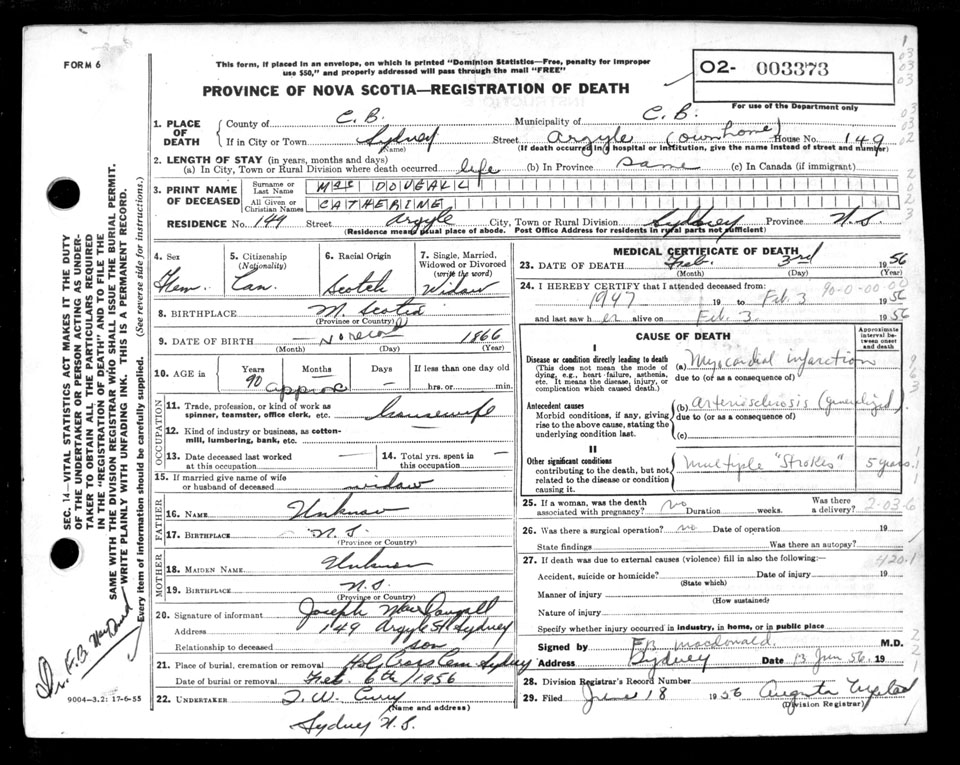 FORM 6
This form, if placed in an envelope, on which is printed "Dominion Statistics—Free, penalty for improper
use $50," and properly addressed will pass through the mail "FREE"
PROVINCE OF NOVA SCOTIA—REGISTRATION OF DEATH
02- 003373
For use of the Department only
1. PLACE OF DEATH
County of C.B. Municipality of C.B.
If in City or Town Sydney Street Argyle (own home) House No. 149
(Name) (If death occurred in a hospital or institution, give the name instead of street and number)
2. LENGTH OF STAY (in years, months and days)
(a) In City, Town or Rural Division where death occurred life (b) In Province Same (c) In Canada (if immigrant)
3. PRINT NAME OF DECEASED
Surname or Last Name MacDOUGALL
All Given or Christian Names CATHERINE
RESIDENCE No. 149 Street Argyle City, Town or Rural Division Sydney Province N.S
(Residence means usual place of abode. Post Office Address for residents in rural parts not sufficient)
4. Sex Fem.
5. Citizenship (Nationality) Can.
6. Racial Origin Scotch
7. Single, Married, Widowed or Divorced (write the word) Widow
8. BIRTHPLACE N. Scotia
(Province or Country)
9. DATE OF BIRTH No record 1866
(Month) (Day) (Year)
10. AGE in Years 90 Months approx Days — If less than one day old
hrs. or min.
OCCUPATION
11. Trade, profession, or kind of work as spinner, teamster, office clerk, etc. housewife
12. Kind of industry or business, as cotton-mill, lumbering, bank, etc. —
13. Date deceased last worked at this occupation —
14. Total yrs. spent in this occupation —
15. If married give name of wife or husband of deceased widow
FATHER
16. NAME Unknown
17. BIRTHPLACE N.S.
(Province or Country)
MOTHER
18. MAIDEN NAME Unknown
19. BIRTHPLACE N.S.
(Province or Country)
20. Signature of informant Joseph MacDougall
Address 149 Argyle St Sydney
Relationship to deceased son
21. Place of burial, cremation or removal Holy Cross Cem Sydney
Date of burial or removal Feb. 6th/1956
22. UNDERTAKER T. W. Curry
(Name and address)
Sydney N.S.
MEDICAL CERTIFICATE OF DEATH
23. DATE OF DEATH Feb. 3rd 1956
(Month) (Day) (Year)
24. I HEREBY CERTIFY that I attended deceased from:
1947 19 to Feb. 3 1956
and last saw her alive on Feb. 3. 1956
90-0-00-00
CAUSE OF DEATH
Approximate interval between onset and death
I
Disease or condition directly leading to death
(This does not mean the mode of dying, e.g., heart failure, asthenia, etc. It means the disease, injury, or complication which caused death.)
(a) Myocardial infarction
due to (or as a consequence of)
Antecedent causes
Morbid conditions, if any, giving rise to the above cause, stating the underlying condition last.
(b) Arteriosclerosis (generalized).
due to (or as a consequence of)
(c)
II
Other significant conditions
contributing to the death, but not related to the disease or condition causing it.
Multiple "Strokes" 5 years.
25. If a woman, was the death associated with pregnancy? no Duration weeks. Was there a delivery?
2-03-6
26. Was there a surgical operation? no Date of operation 19
State findings Was there an autopsy?
27. If death was due to external causes (violence) fill in also the following:
420.1
Accident, suicide or homicide? Date of injury 19
(State which)
Manner of injury
(How sustained)
Nature of injury
Specify whether injury occurred in industry, in home, or in public place
Signed by F.B. MacDonald. M.D.
Address Sydney Date 13 Jun 56, 19
28. Division Registrar's Record Number
29. Filed June 18 1956 Augusta
(Division Registrar)
SEC. 14—VITAL STATISTICS ACT MAKES IT THE DUTY
OF THE UNDERTAKER OR PERSON ACTING AS UNDER-
TAKER TO OBTAIN ALL THE PARTICULARS REQUIRED
IN THE "REGISTRATION OF DEATH" AND TO FILE THE
SAME WITH THE DIVISION REGISTRAR WHO SHALL ISSUE THE BURIAL PERMIT.
WRITE PLAINLY WITH UNFADING INK. THIS IS A PERMANENT RECORD.
Every item of information should be carefully supplied. (See reverse side for instructions.)
Dr. F.B. MacDonald
9004—3.2: 17-6-55